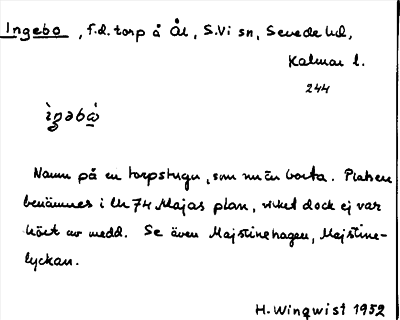 Ingebo, f.d. torp å Ål, S.Vi sn, Sevede hd,
Kalmar l.
244
Namn på en torpstuga, som nu är borta. Platsen
benämnes i 74 Majas plan, vilket dock ej var
hört av medd. Se även Majstinehagen, Majstine-
lyckan.
H. Winqwist 1952